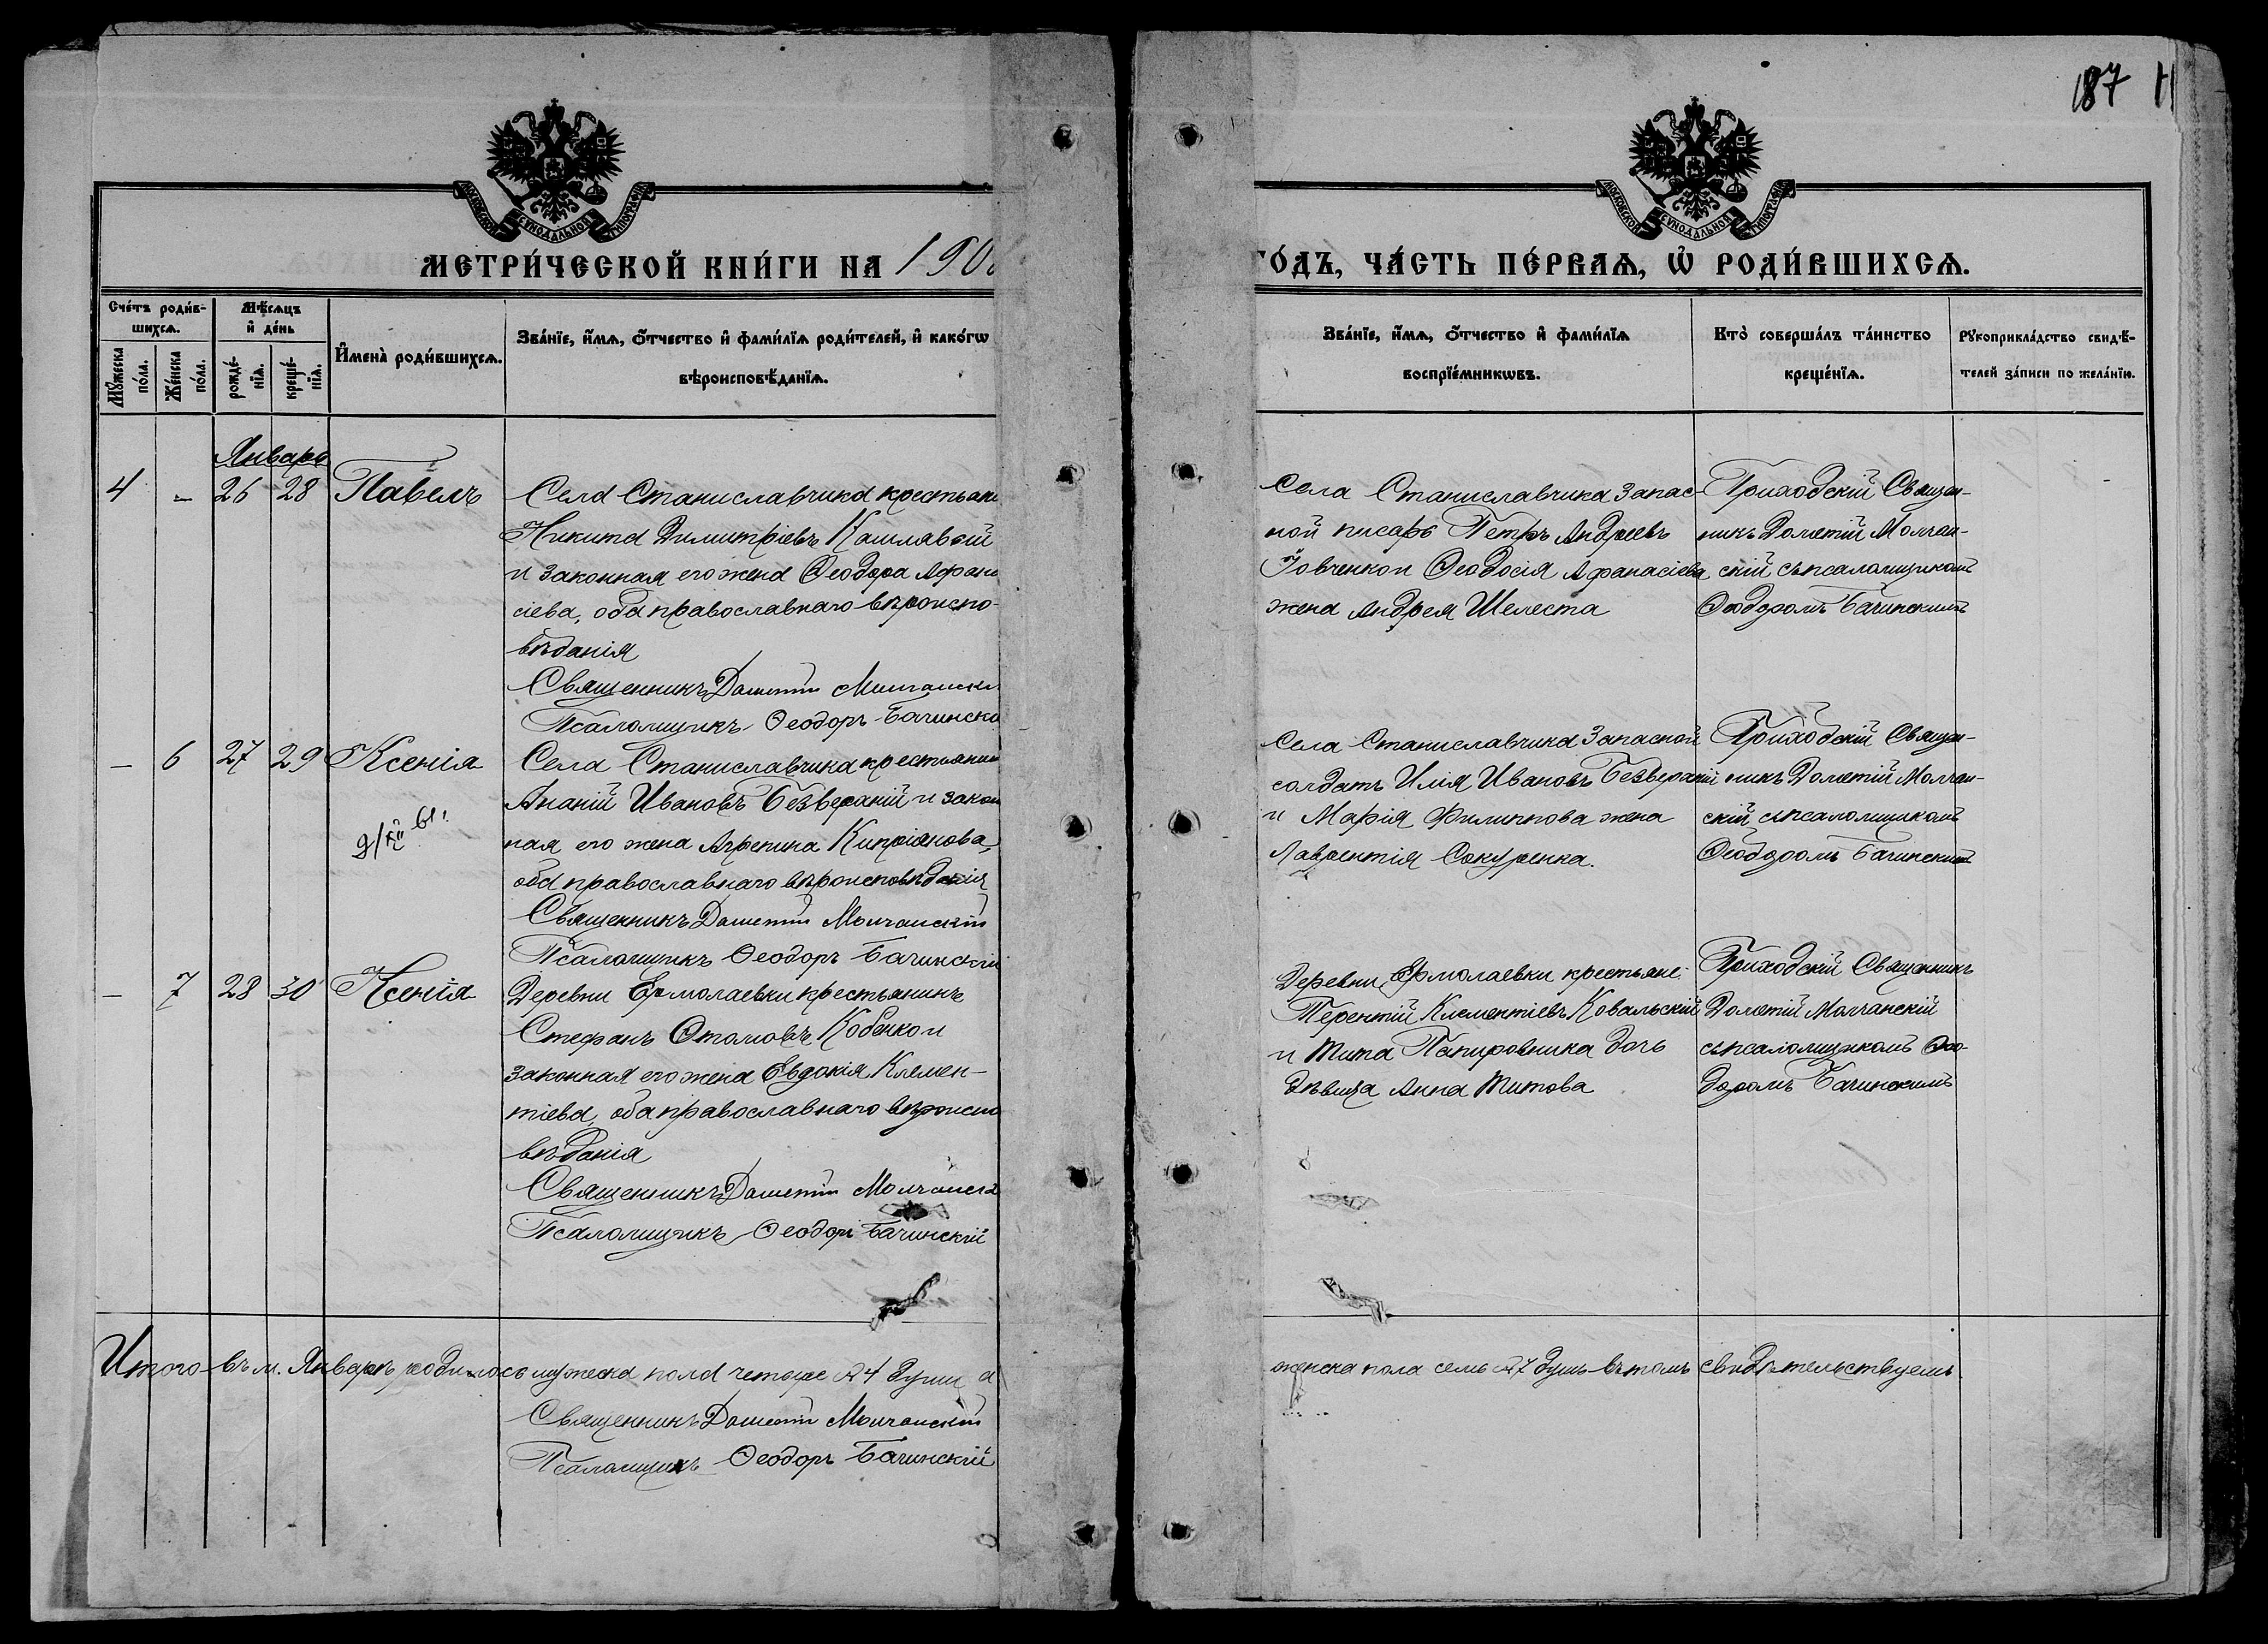 187
МОСКОВСКОЙ СѴНОДАЛЬНОЙ ТИПОГРАФІИ
МОСКОВСКОЙ СѴНОДАЛЬНОЙ ТИПОГРАФІИ
МЕТРИ́ЧЕСКОЙ КНИ́ГИ НА 190
ГО́ДЪ, ЧА́СТЬ ПЕ́РВАѦ, Ѡ҆ РОДИ́ВШИХСѦ.
Сче́тъ роди́в-
шихсѧ.
Мꙋ́жеска по́ла.
Же́нска по́ла.
Мѣ́сѧцъ
и҆ де́нь
рожде́-
нїѧ.
креще́-
нїѧ.
И҆мена̀ роди́вшихсѧ.
Зва́нїе, и҆́мѧ, ѻ҆́тчество и҆ фами́лїѧ роди́телей, и҆ како́гѡ
вѣроисповѣ́данїѧ.
Зва́нїе, и҆́мѧ, ѻ҆́тчество и҆ фами́лїѧ
воспрїе́мникѡвъ.
Кто̀ соверша́лъ та́инство
креще́нїѧ.
Рꙋкоприкла́дство свидѣ́-
телей за́писи по жела́нїю.
Январь
4 - 26 28 Павелъ
Села Станиславчика крестьяни
Никита Димитріевъ
и законная его жена Ѳеодора Афана
сіева, оба православнаго вѣроиспо-
вѣданія
Священникъ Дометій Молчански
Псаломщикъ Ѳеодоръ Бачинскі
Села Станиславчика Запас-
ной писарь Петръ Андреевъ
Іовченко и Ѳеодосія Афанасіева
жена Андрея Шелеста
Приходскій Священ-
никъ Дометій Молчан-
скій съ псаломщикомъ
Ѳеодоромъ Бачинскимъ
- 6 27 29 Ксенія
Села Станиславчика крестьянин
Ананій Ивановъ Безверхній и закон
ная его жена Агрепина Кипріянова,
оба православнаго вѣроисповѣданія
Священникъ Дометій Молчанскій
Псаломщикъ Ѳеодоръ Бачинскій
Села Станиславчика Запасной
солдатъ Илія Ивановъ Безверхній
и Марія Филиппова жена
Лаврентія Сокуренка.
Приходскій Священ-
никъ Дометій Молчан-
скій съ псаломщикомъ
Ѳеодоромъ Бачинскимъ
- 7 28 30 Ксенія
Деревни Ермолаевки крестьянинъ
Стефанъ Кобенко и
законная его жена Евдокія Климен-
тіева, оба православнаго вѣроиспо
вѣданія
Священникъ Дометій Молчанскі
Псаломщикъ Ѳеодоръ Бачинскій
Деревни Ермолаевки крестьяне:
Терентій Климентіевъ Ковальскій
и Тита Папировника дочь
дѣвица Анна Титова
Приходскій Священникъ
Дометій Молчанскій
съ псаломщикомъ Ѳео-
доромъ Бачинскимъ
Итого въ м. Январѣ родилось мужеска пола четыре 4 души а
женска пола семь 7 душъ въ томъ свидѣтельствуемъ.
Священникъ Дометій Молчанскій
Псаломщикъ Ѳеодоръ Бачинскій